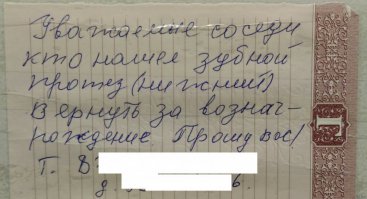 Уважаемые соседи
кто нашел зубной
протез (нижний)
вернуть за вознаг-
рождение Прошу вас!
Т. 8
д.
1